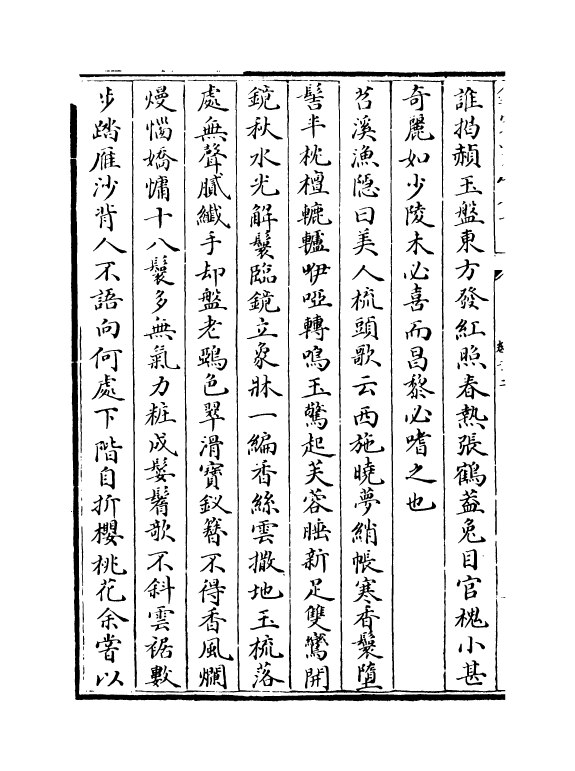 誰掲赬玉盤東方發紅照春熱張鶴葢兔目官槐小甚
奇麗如少陵未必喜而昌黎必嗜之也
苕溪漁隱曰美人梳頭歌云西施曉夢綃帳寒香鬟墮
髻半枕檀轆轤咿啞轉鳴玉驚起芙蓉睡新足雙鸞開
鏡秋水光解鬟臨鏡立象牀一編香絲雲撒地玉梳落
處無聲膩纎手却盤老鵶色翠滑寶釵簪不得香風爛
熳惱嬌慵十八鬟多無氣力粧成鬌鬌欹不斜雲裾數
步踏雁沙背人不語向何處下階自折櫻桃花余嘗以